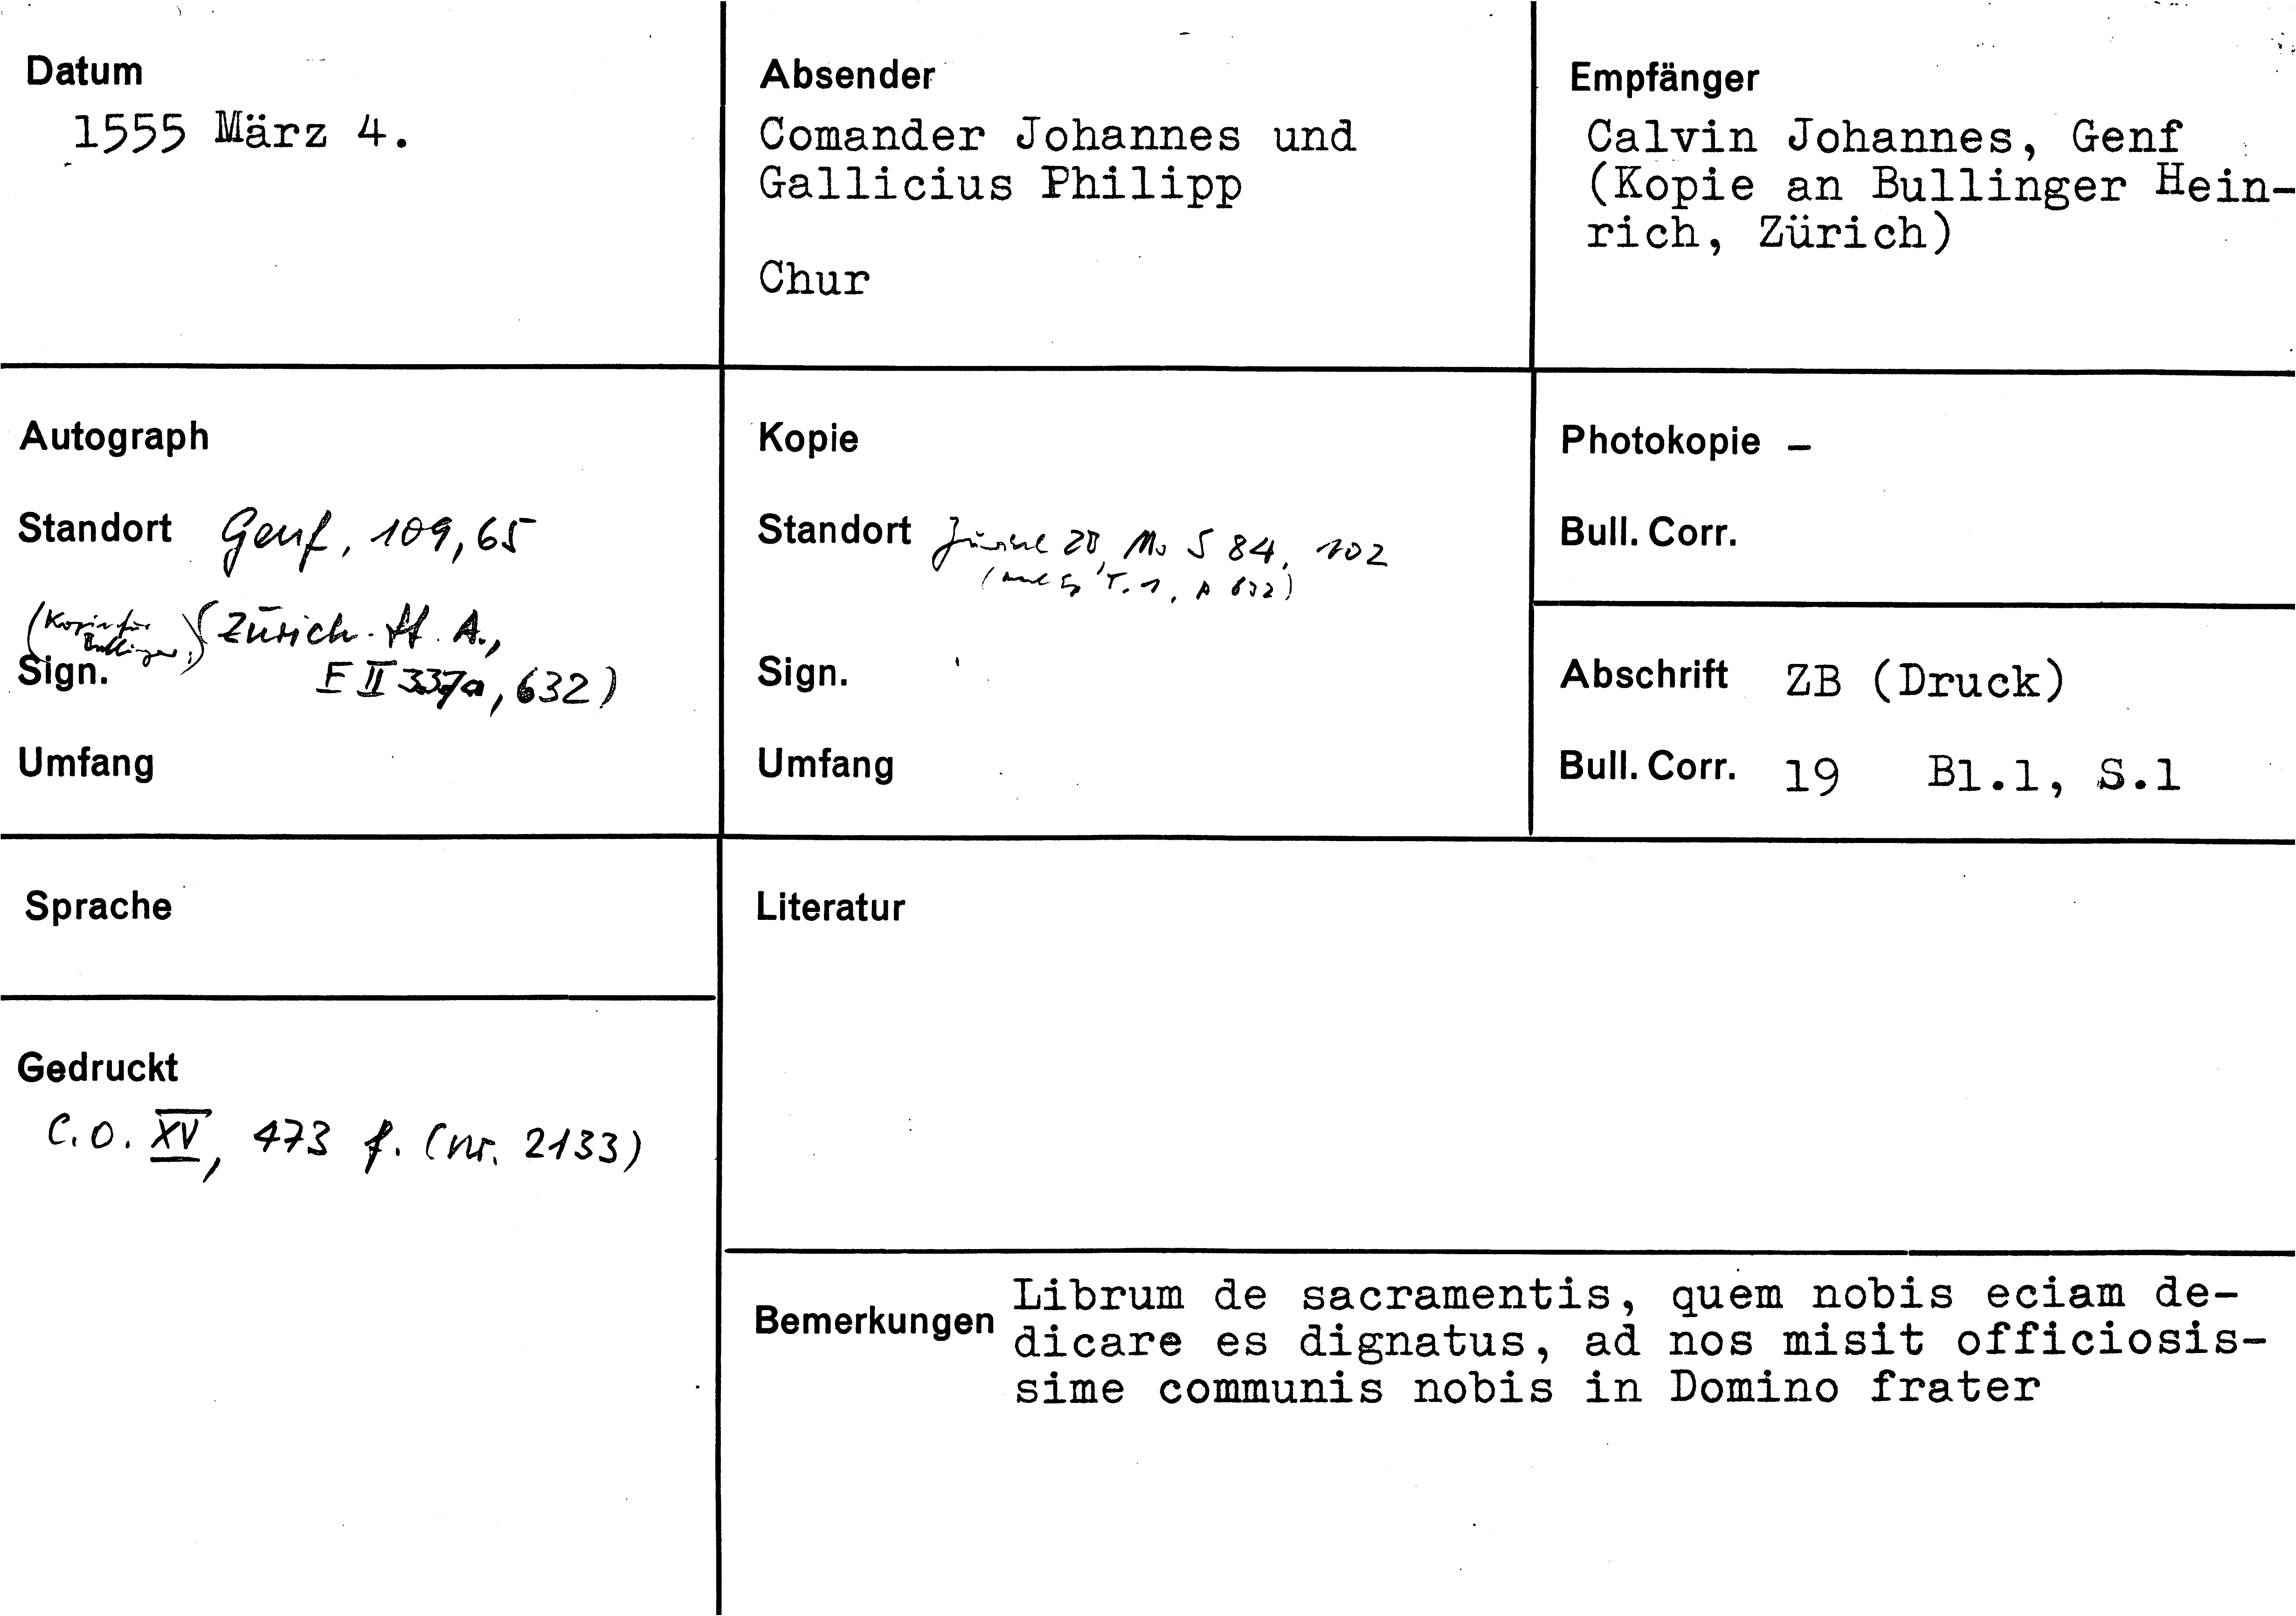 Datum
1555 März 4.
Absender
Comander Johannes und
Gallicius Philipp
Chur
Empfänger
Calvin Johannes, Genf
(Kopie an Bullinger Hein-
rich, Zürich)
Autograph
Standort Genf, 109,65
(Kopie für
Bullinger,) (Zürich St. A.,
Sign. E II 337a, 632)
Umfang
Kopie
Standort Zürich ZB, Ms S 84, 102
Sign.
Umfang
Photokopie –
Bull. Corr.
Abschrift ZB (Druck)
Bull. Corr. 19 Bl.1, S.1
Sprache
Gedruckt
C.O. XV, 473 f. (nr. 2133)
Literatur
Bemerkungen
Librum de sacramentis, quem nobis eciam de-
dicare es dignatus, ad nos misit officiosis-
sime communis nobis in Domino frater